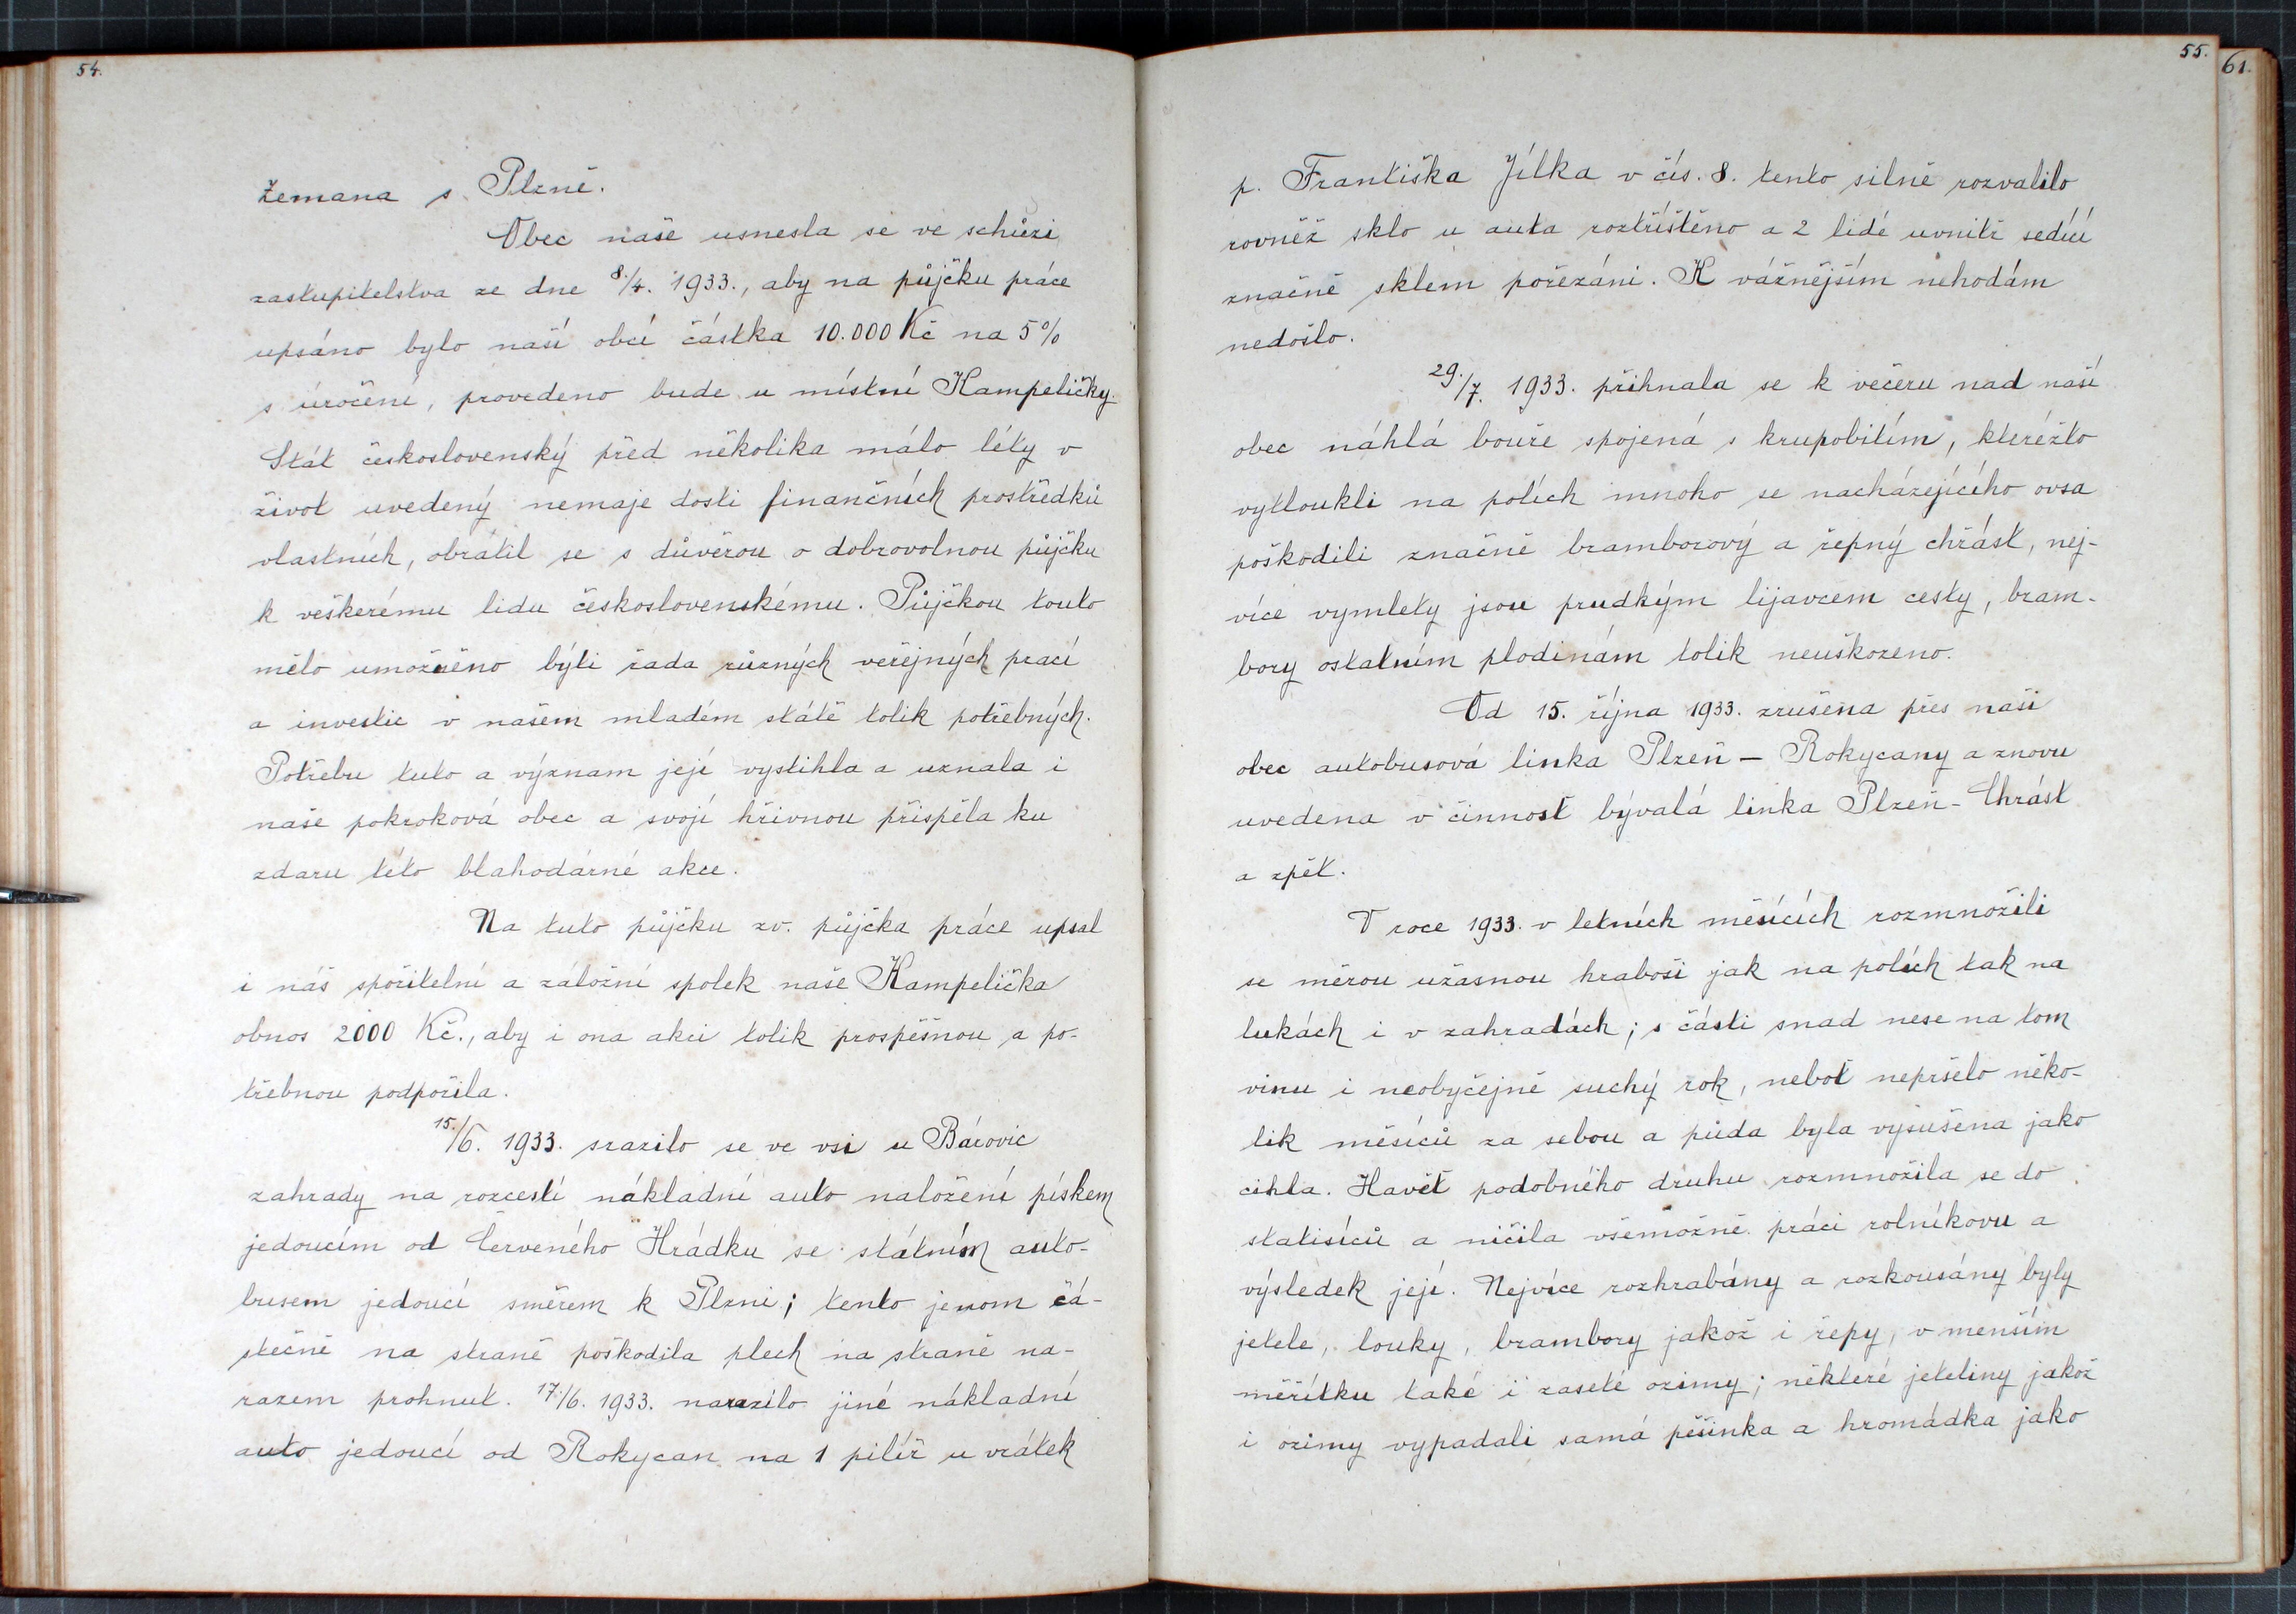 54.
Zemana s Plzně.
Obec naše usnesla se ve schůzi
zastupitelstva ze dne 8./4. 1933., aby na půjčku práce
upsáno bylo naší obcí částka 10.000 Kč na 5%
s úročení, provedeno bude u místní Kampeličky.
Stát československý před několika málo léty v
život uvedený nemaje dosti finančních prostředků
vlastních, obrátil se s důvěrou o dobrovolnou půjčku
k veškerému lidu československému. Půjčkou touto
mělo umožněno býti řada různých veřejných prací
a investic v našem mladém státě tolik potřebných.
Potřebu tuto a význam její vystihla a uznala i
naše pokroková obec a svojí hřivnou přispěla ku
zdaru této blahodárné akce.
Na tuto půjčku zv. půjčka práce upsal
i náš spořitelní a záložní spolek naše Kampelička
obnos 2000 Kč., aby i ona akci tolik prospěšnou a po-
třebnou podpořila.
15./6. 1933. srazilo se ve vsi u Bárovic
zahrady na rozcestí nákladní auto naložení pískem
jedoucím od Červeného Hrádku se státním auto-
busem jedoucí směrem k Plzni; tento jenom čá-
stečně na straně poškodila plech na straně na-
razem prohnut. 17./6. 1933. narazilo jiné nákladní
auto jedoucí od Rokycan na 1 pilíř u vrátek
55.
61.
p. Františka Jílka v čís. 8. tento silně rozvalilo
rovněž sklo u auta roztříštěno a 2 lidé uvnitř sedící
značně sklem pořezáni. K vážnějším nehodám
nedošlo.
29./7. 1933. přihnala se k večeru nad naší
obec náhlá bouře spojená s krupobitím, kteréžto
vytloukli na polích mnoho se nacházejícího ovsa
poškodili značně bramborový a řepný chřást, nej-
více vymlety jsou prudkým lijavcem cesty, bram-
bory ostatním plodinám tolik neuškozeno.
Od 15. října 1933. zrušena přes naši
obec autobusová linka Plzeň - Rokycany a znovu
uvedena v činnost bývalá linka Plzeň - Chrást
a zpět.
V roce 1933. v letních měsících rozmnožili
se měrou užasnou hraboši jak na polích tak na
lukách i v zahradách; s části snad nese na tom
vinu i neobyčejně suchý rok, neboť nepršelo něko-
lik měsíců za sebou a půda byla vysušena jako
cihla. Havěť podobného druhu rozmnožila se do
statisíců a ničila všemožně práci rolníkovu a
výsledek její. Nejvíce rozhrabány a rozkousány byly
jetele, louky, brambory jakož i řepy, v menším
měřítku také i zaseté ozimy; některé jeteliny jakož
i ozimy vypadali samá pěšinka a hromádka jako